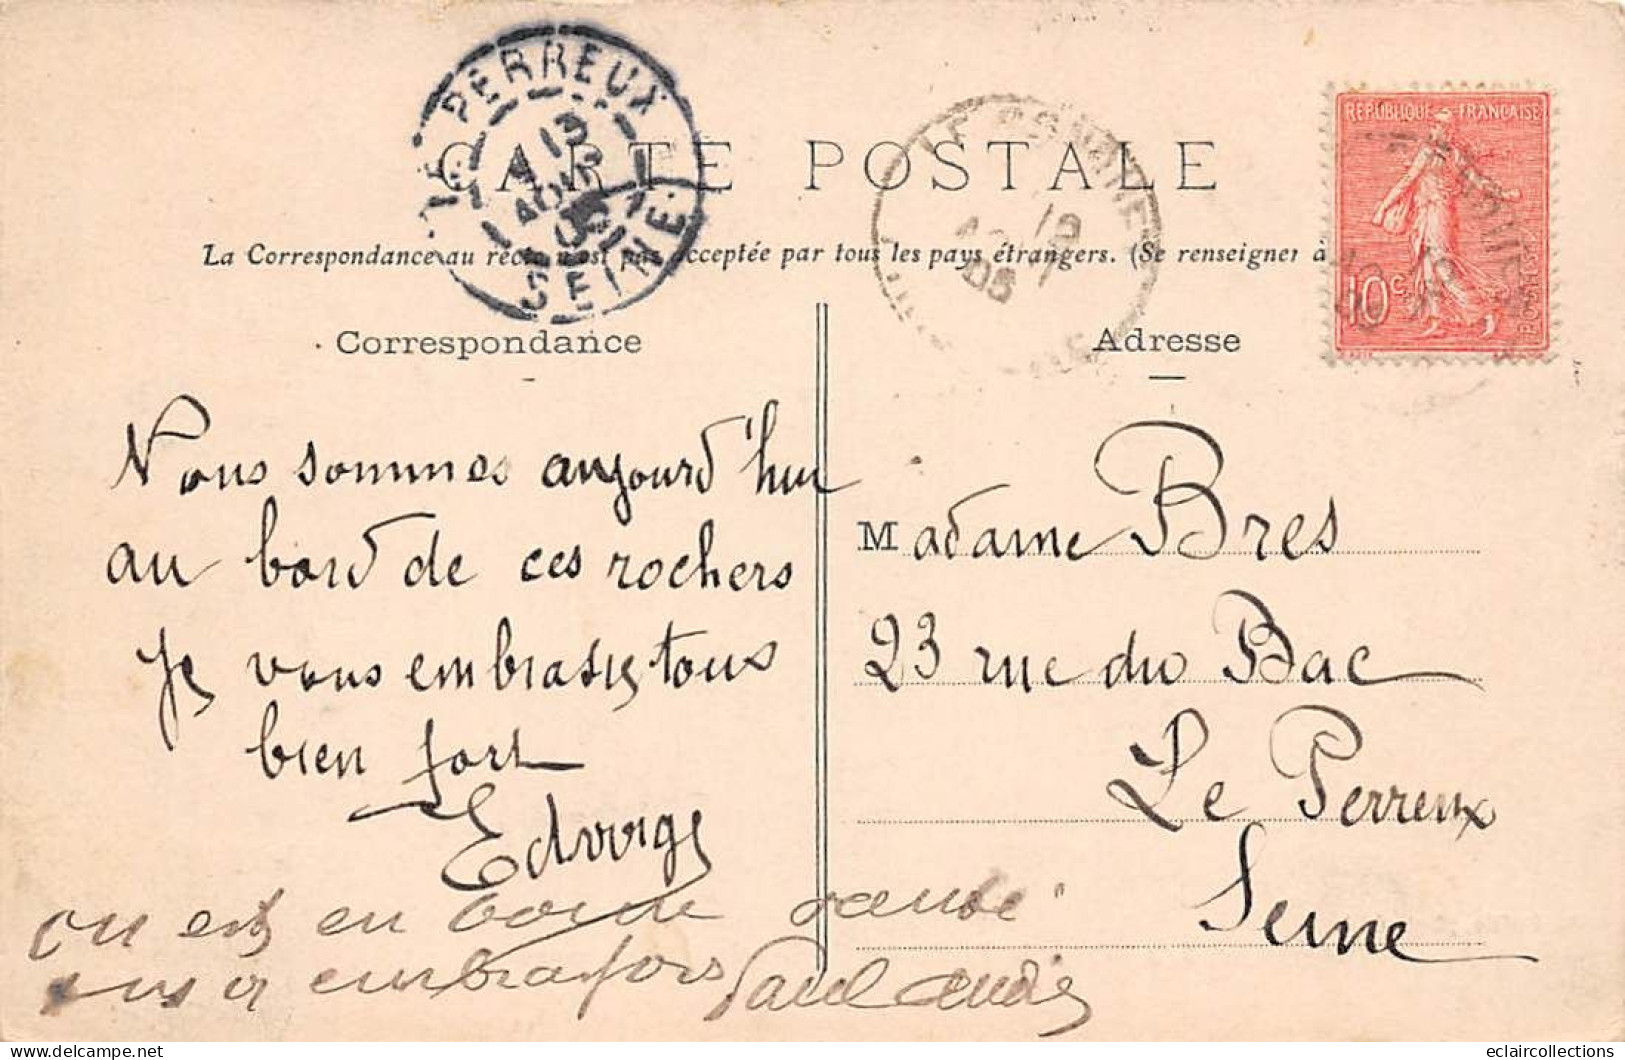 LE PERREUX
13
AOUT
05
SEINE
CARTE POSTALE
La Correspondance au recto n'est pas acceptée par tous les pays étrangers. (Se renseigner à
REPUBLIQUE FRANÇAISE
10 c
POSTES
Correspondance
Adresse
Nous sommes aujourd'hui
au bord de ces rochers
Je vous embrasse tous
bien fort
Edwige
on est en bonne santé
embrasse fors Paul André
Madame Bres
23 rue du Bac
Le Perreux
Seine
eclaircollections